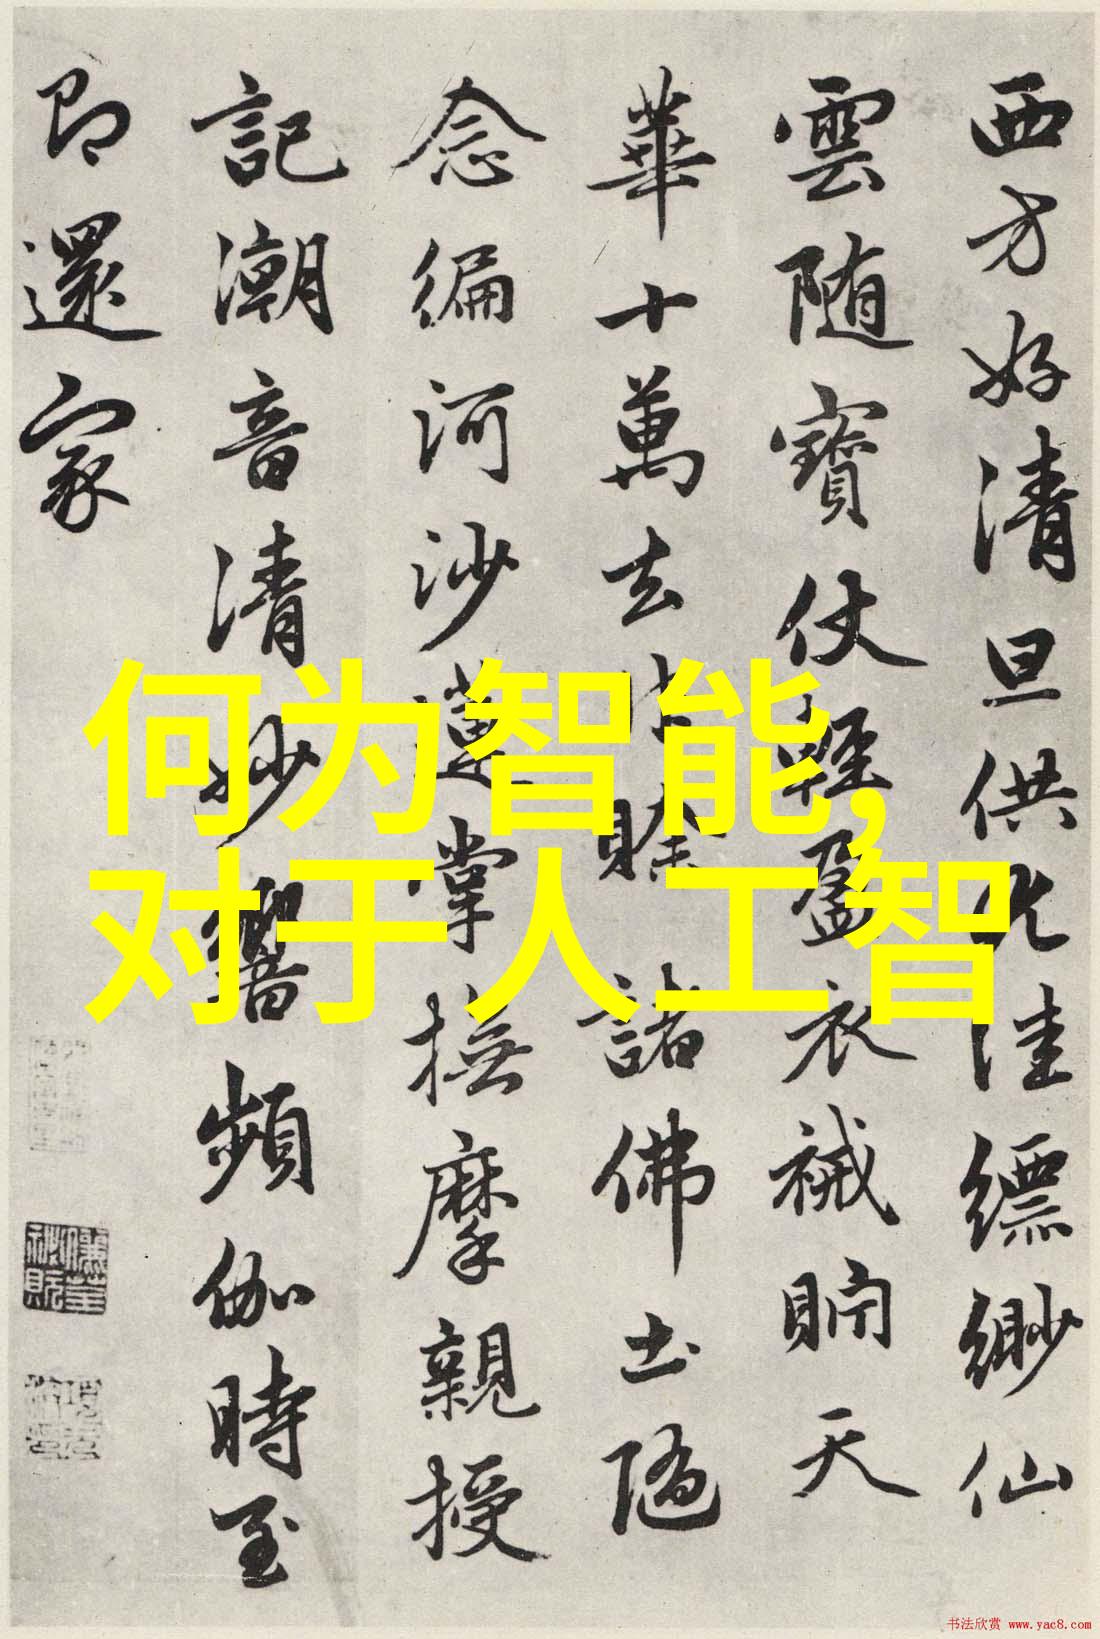 西方好清旦供九洼縹緲仙
雲随寶仗輕盈衣裓貯天
華十萬去他賒諸佛土隨
念徧河沙蓮掌撫摩親授
記潮音清妙響頻伽時至
即還家
何为智能,
对于人工智
书法欣赏 www.yac8.com